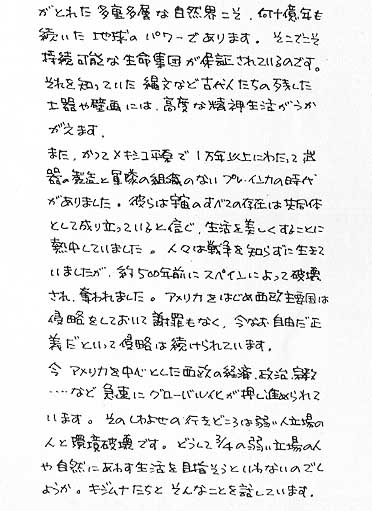 がとれた多種多層な自然界こそ、何十億年も
続いた地球のパワーであります。そこでこそ
持続可能な生命集団が保証されているのです。
それを知っていた縄文など古代人たちの残した
土器や壁画には、高度な精神生活がうか
がえます。
また、かつてメキシコ平原で1万年以上にわたって武
器の製造と軍隊の組織のないプレ・インカの時代
がありました。彼らは宇宙のすべての存在は共同体
として成り立っていると信じ、生活を美しくすることに
熱中していました。人々は戦争を知らずに生きて
いましたが、約500年前にスペインによって破壊
され、奪われました。アメリカをはじめ西欧主要国は
侵略をしておいて謝罪もなく、今なお自由だ正
義だといって侵略は続けられています。
今アメリカを中心とした西欧の経済、政治、宗教
……など急速にグローバル化が押し進められて
います。そのしわよせの行きどころは弱い人立場の
人と環境破壊です。どうして3/4の弱い立場の人
や自然にあわす生活を目指そうといわないのでし
ょうか。キジムナたちとそんなことを話しています。